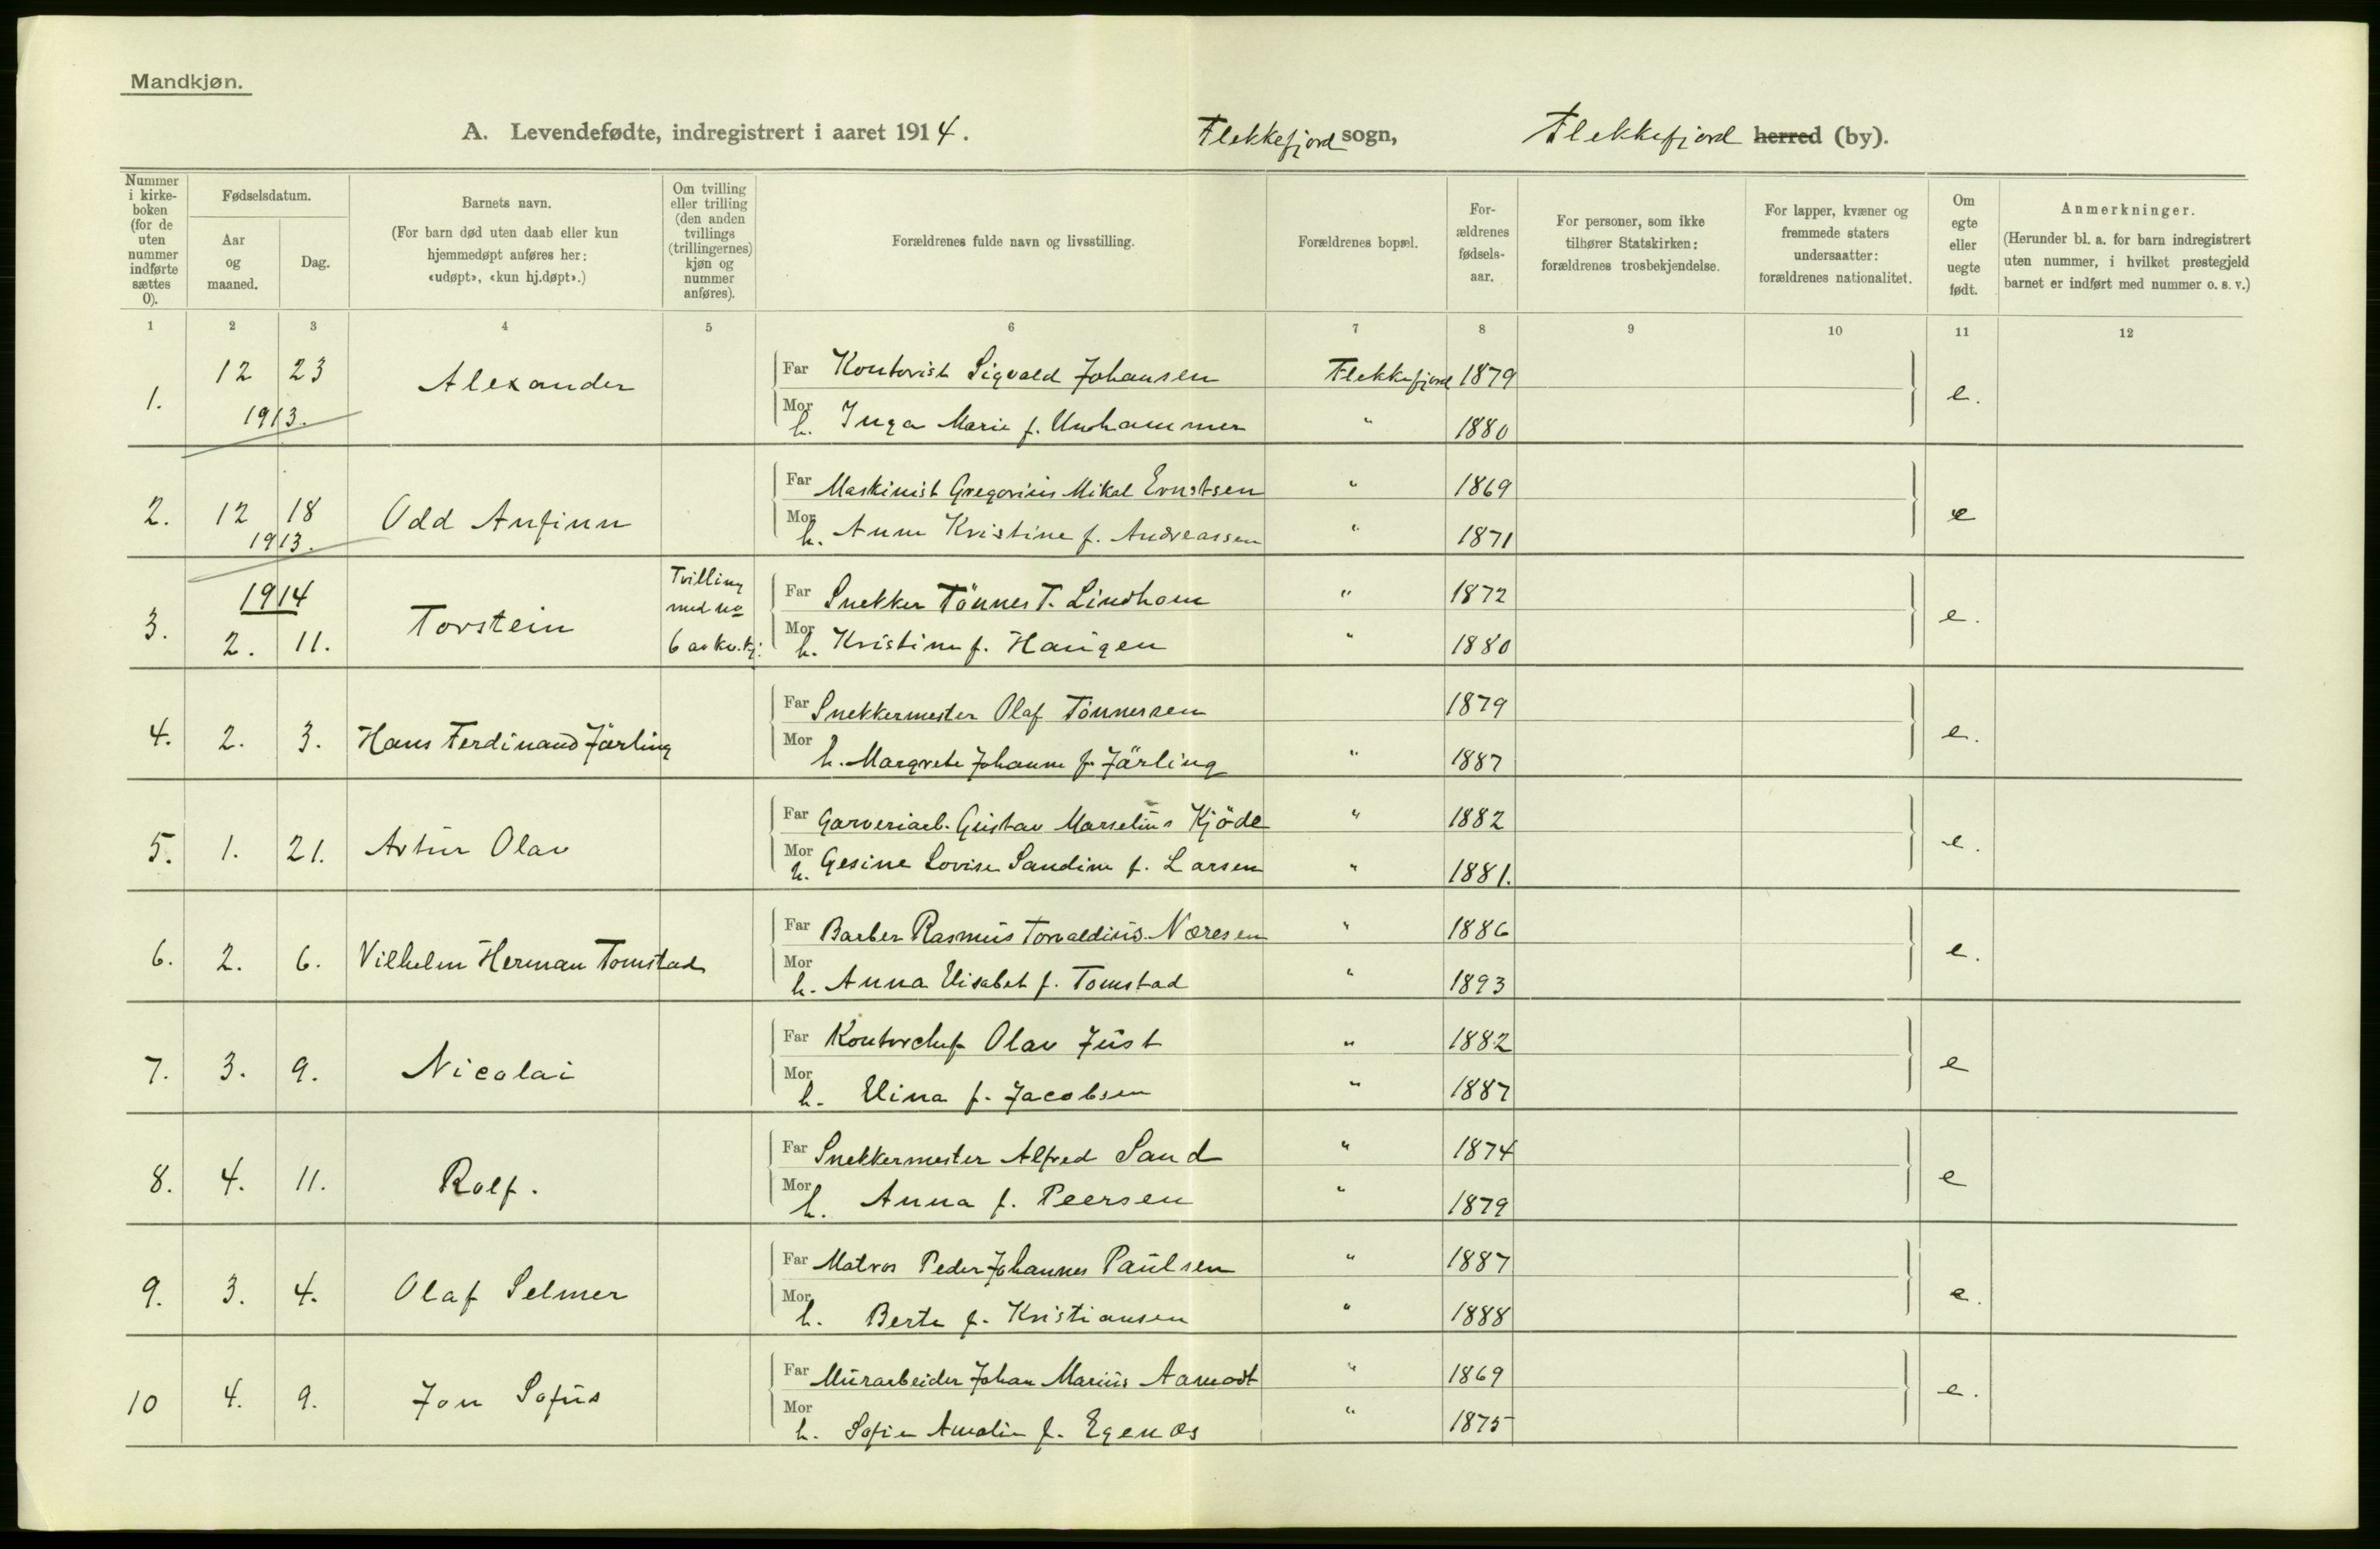 Mandkjøn.
A. Levendefødte, indregistrert i aaret 1914. Flekkefjord sogn, Flekkefjord herred (by).
Nummer i kirke-boken (for de uten nummer indførte sættes 0).
Fødselsdatum.
Aar og maaned.
Dag.
Barnets navn.
(For barn død uten daab eller kun hjemmedøpt anføres her: «udøpt», «kun hj.døpt».)
Om tvilling eller trilling (den anden tvillings (trillingernes) kjøn og nummer anføres).
Forældrenes fulde navn og livsstilling.
Forældrenes bopæl.
For-ældrenes fødsels-aar.
For personer, som ikke tilhører Statskirken: forældrenes trosbekjendelse.
For lapper, kvæner og fremmede staters undersaatter: forældrenes nationalitet.
Om egte eller uegte født.
Anmerkninger.
(Herunder bl. a. for barn indregistrert uten nummer, i hvilket prestegjeld barnet er indført med nummer o. s. v.)
1 2 3 4 5 6 7 8 9 10 11 12
1. 12 23 1913. Alexander
Far Kontorist Sigvald Johansen Flekkefjord 1879
Mor h. Inga Marie f. " 1880 e.
2. 12 18 1913. Odd Anfinn
Far Maskinist Gregorius Mikal Ernstsen " 1869
Mor h. Anne Kristine f. Andreassen " 1871 e
3. 1914 2. 11. Torstein Tvilling med no 6 av kv.kj.
Far Snekker Tönnes T. Lindham " 1872
Mor h. Kristine f. Haugen " 1880 e.
4. 2. 3. Hans Ferdinand Järling
Far Snekkermester Olaf Tönnessen 1879
Mor h. Margrete Johanne f. Järling " 1887 e.
5. 1. 21. Artur Olav
Far Garveriarb. Gustav Marselius Kjöde " 1882
Mor h. Gesine Lovise Sandine f. Larsen " 1881. e.
6. 2. 6. Vilhelm Herman Tomstad
Far Barber Rasmus Torvaldius Næresen " 1886
Mor h. Anna Elisabet f. Tomstad " 1893 e.
7. 3. 9. Nicolai
Far Kontorchef Olav Just " 1882
Mor h. Elina f. Jacobsen " 1887 e
8. 4. 11. Rolf.
Far Snekkermester Alfred Sand " 1874
Mor h. Anna f. Peersen " 1879 e
9. 3. 4. Olaf Selmer
Far Matros Peder Johannes Paulsen " 1887
Mor h. Berte f. Kristiansen " 1888 e.
10 4. 9. Jon Sofus
Far Murarbeider Johan Marius Aamodt " 1869
Mor h. Sofie Amalie f. Egenæs " 1875 e.